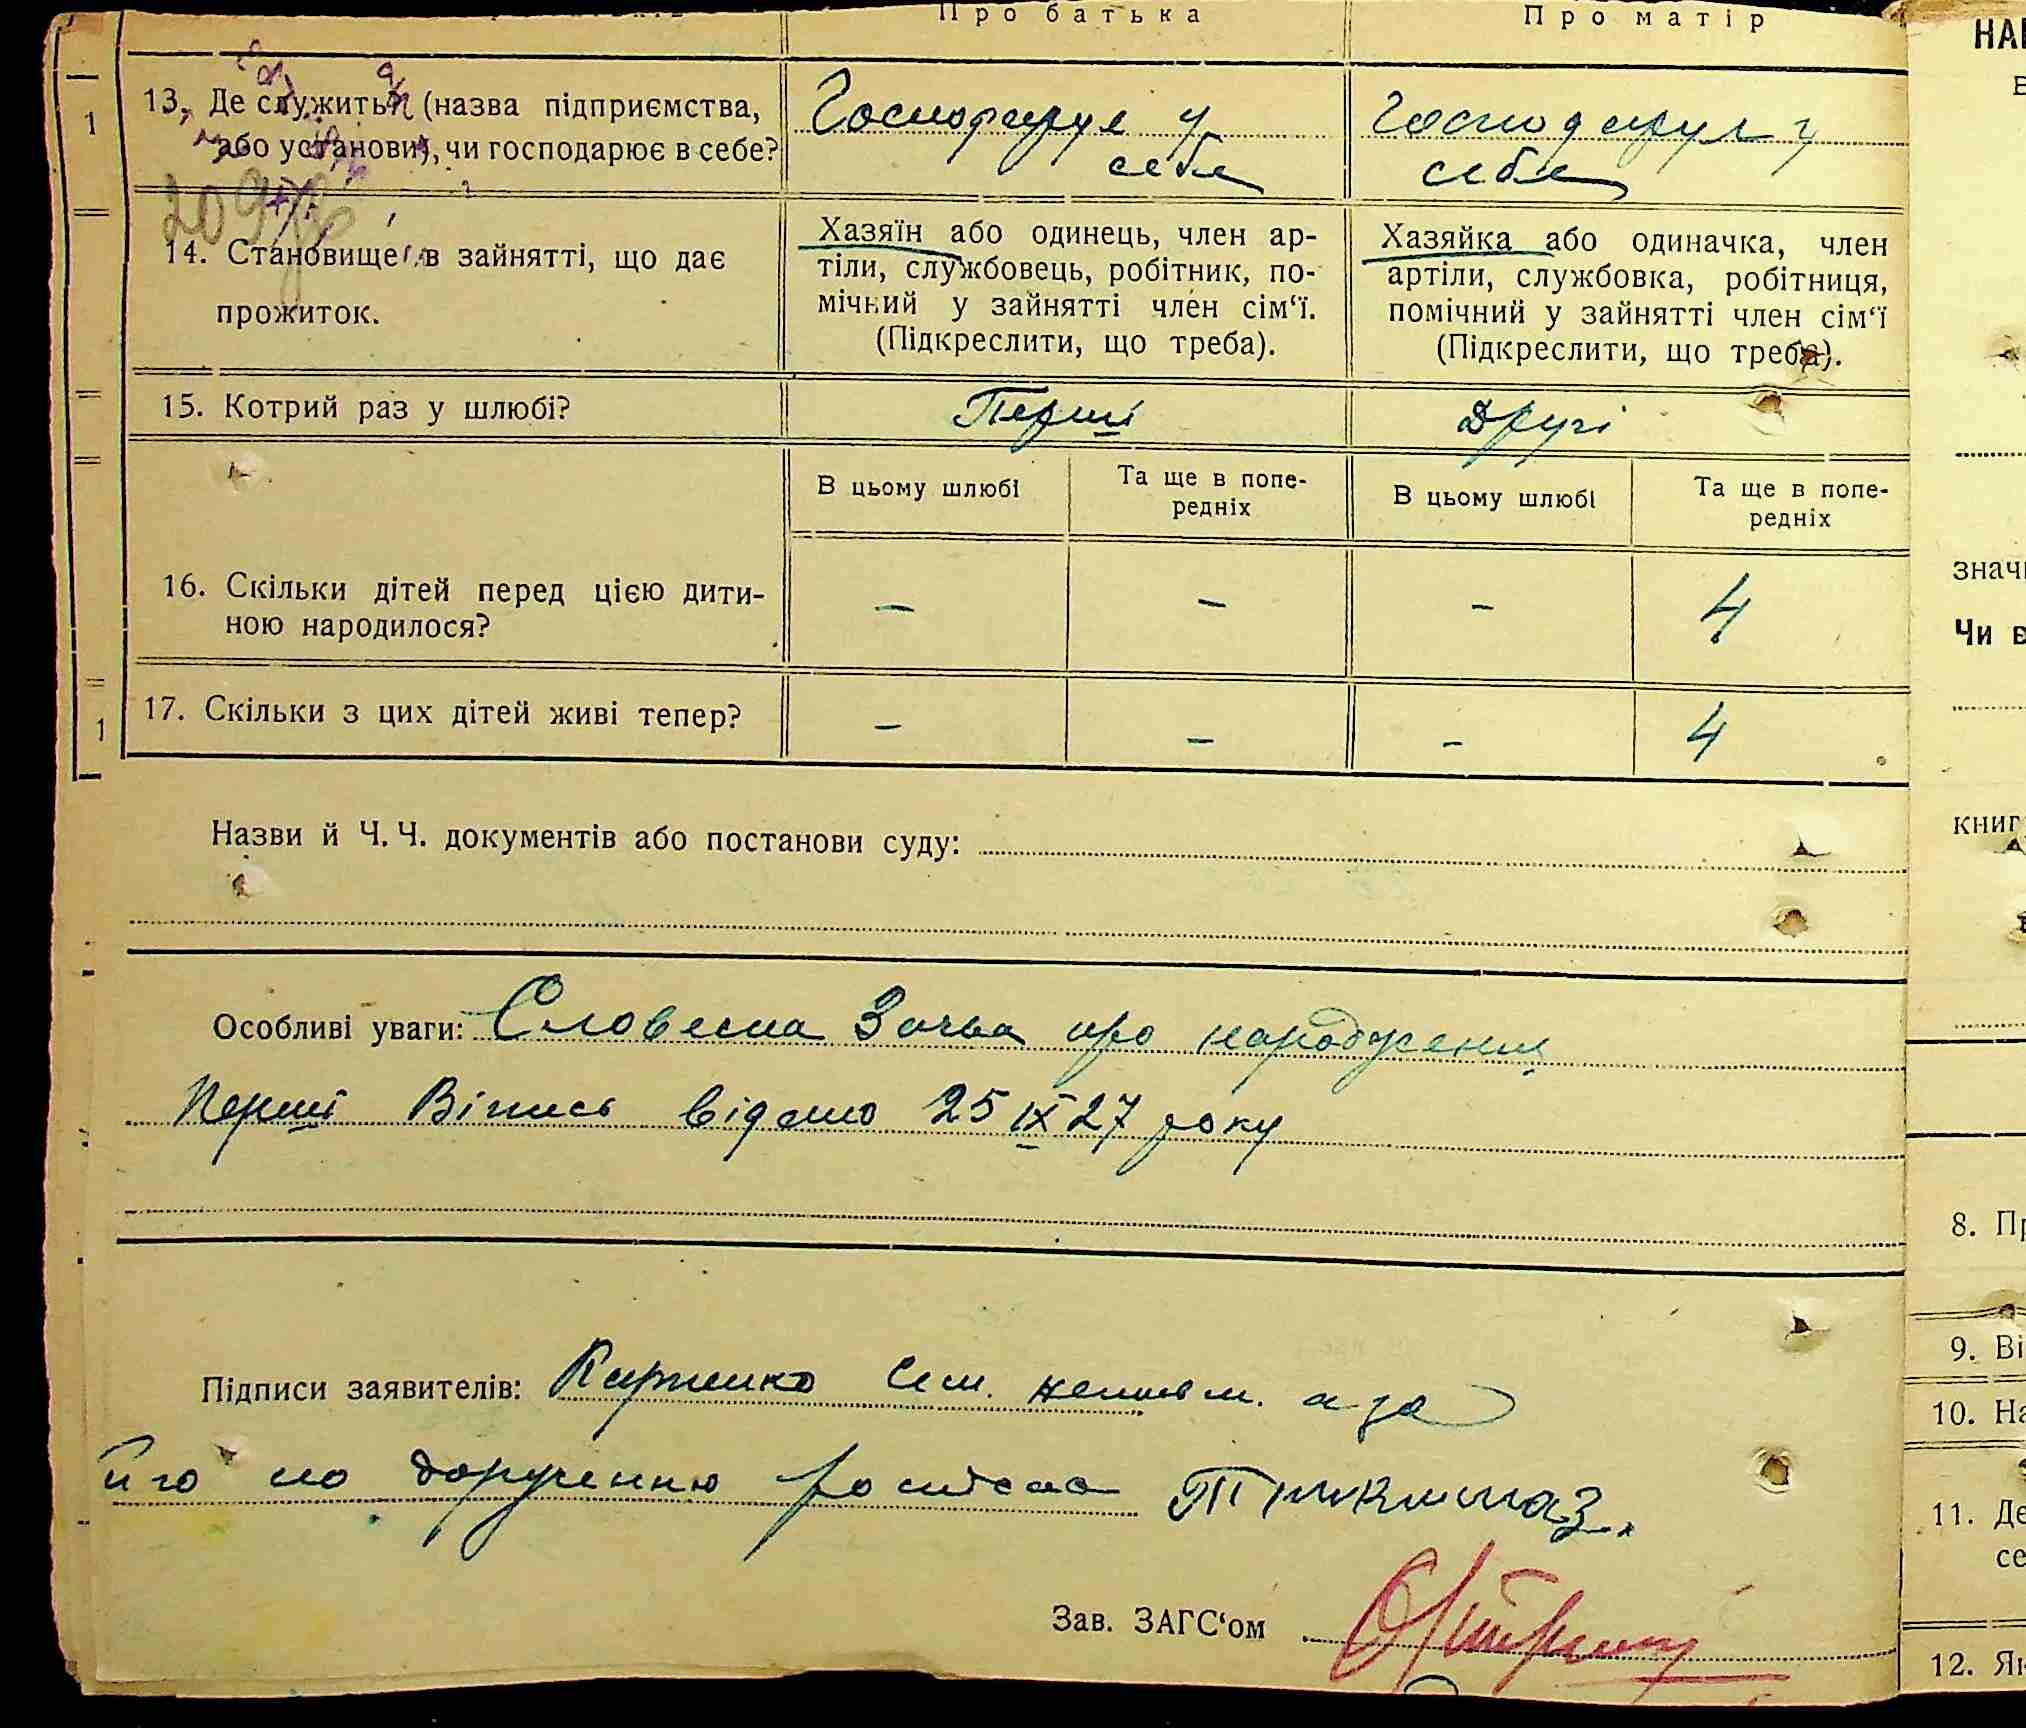 Про батька
Про матір
13. Де служить (назва підприємства,
або установи), чи господарює в себе?
Господарує у
себе
Господарує у
себе
14. Становище в зайнятті, що дає
прожиток.
Хазяїн або одинець, член ар-
тіли, службовець, робітник, по-
мічний у зайнятті член сім‘ї.
(Підкреслити, що треба).
Хазяйка або одиначка, член
артіли, службовка, робітниця,
помічний у зайнятті член сім‘ї
(Підкреслити, що треба).
15. Котрий раз у шлюбі?
Перший
Другі
В цьому шлюбі
Та ще в попе-
редніх
В цьому шлюбі
Та ще в попе-
редніх
16. Скільки дітей перед цією дити-
ною народилося?
–
–
–
4
17. Скільки з цих дітей живі тепер?
–
–
–
4
1
1
Назви й Ч. Ч. документів або постанови суду:
Особливі уваги: Словесна Заява про народження
Перший Віпись відано 25 IX 27 року
Підписи заявителів: неписьм. а за
його по дорученню росписас
Зав. ЗАГС‘ом
НАР
значи
Чи є
книг
8. Пр
9. Ві
10. На
11. Де
се
12. Як